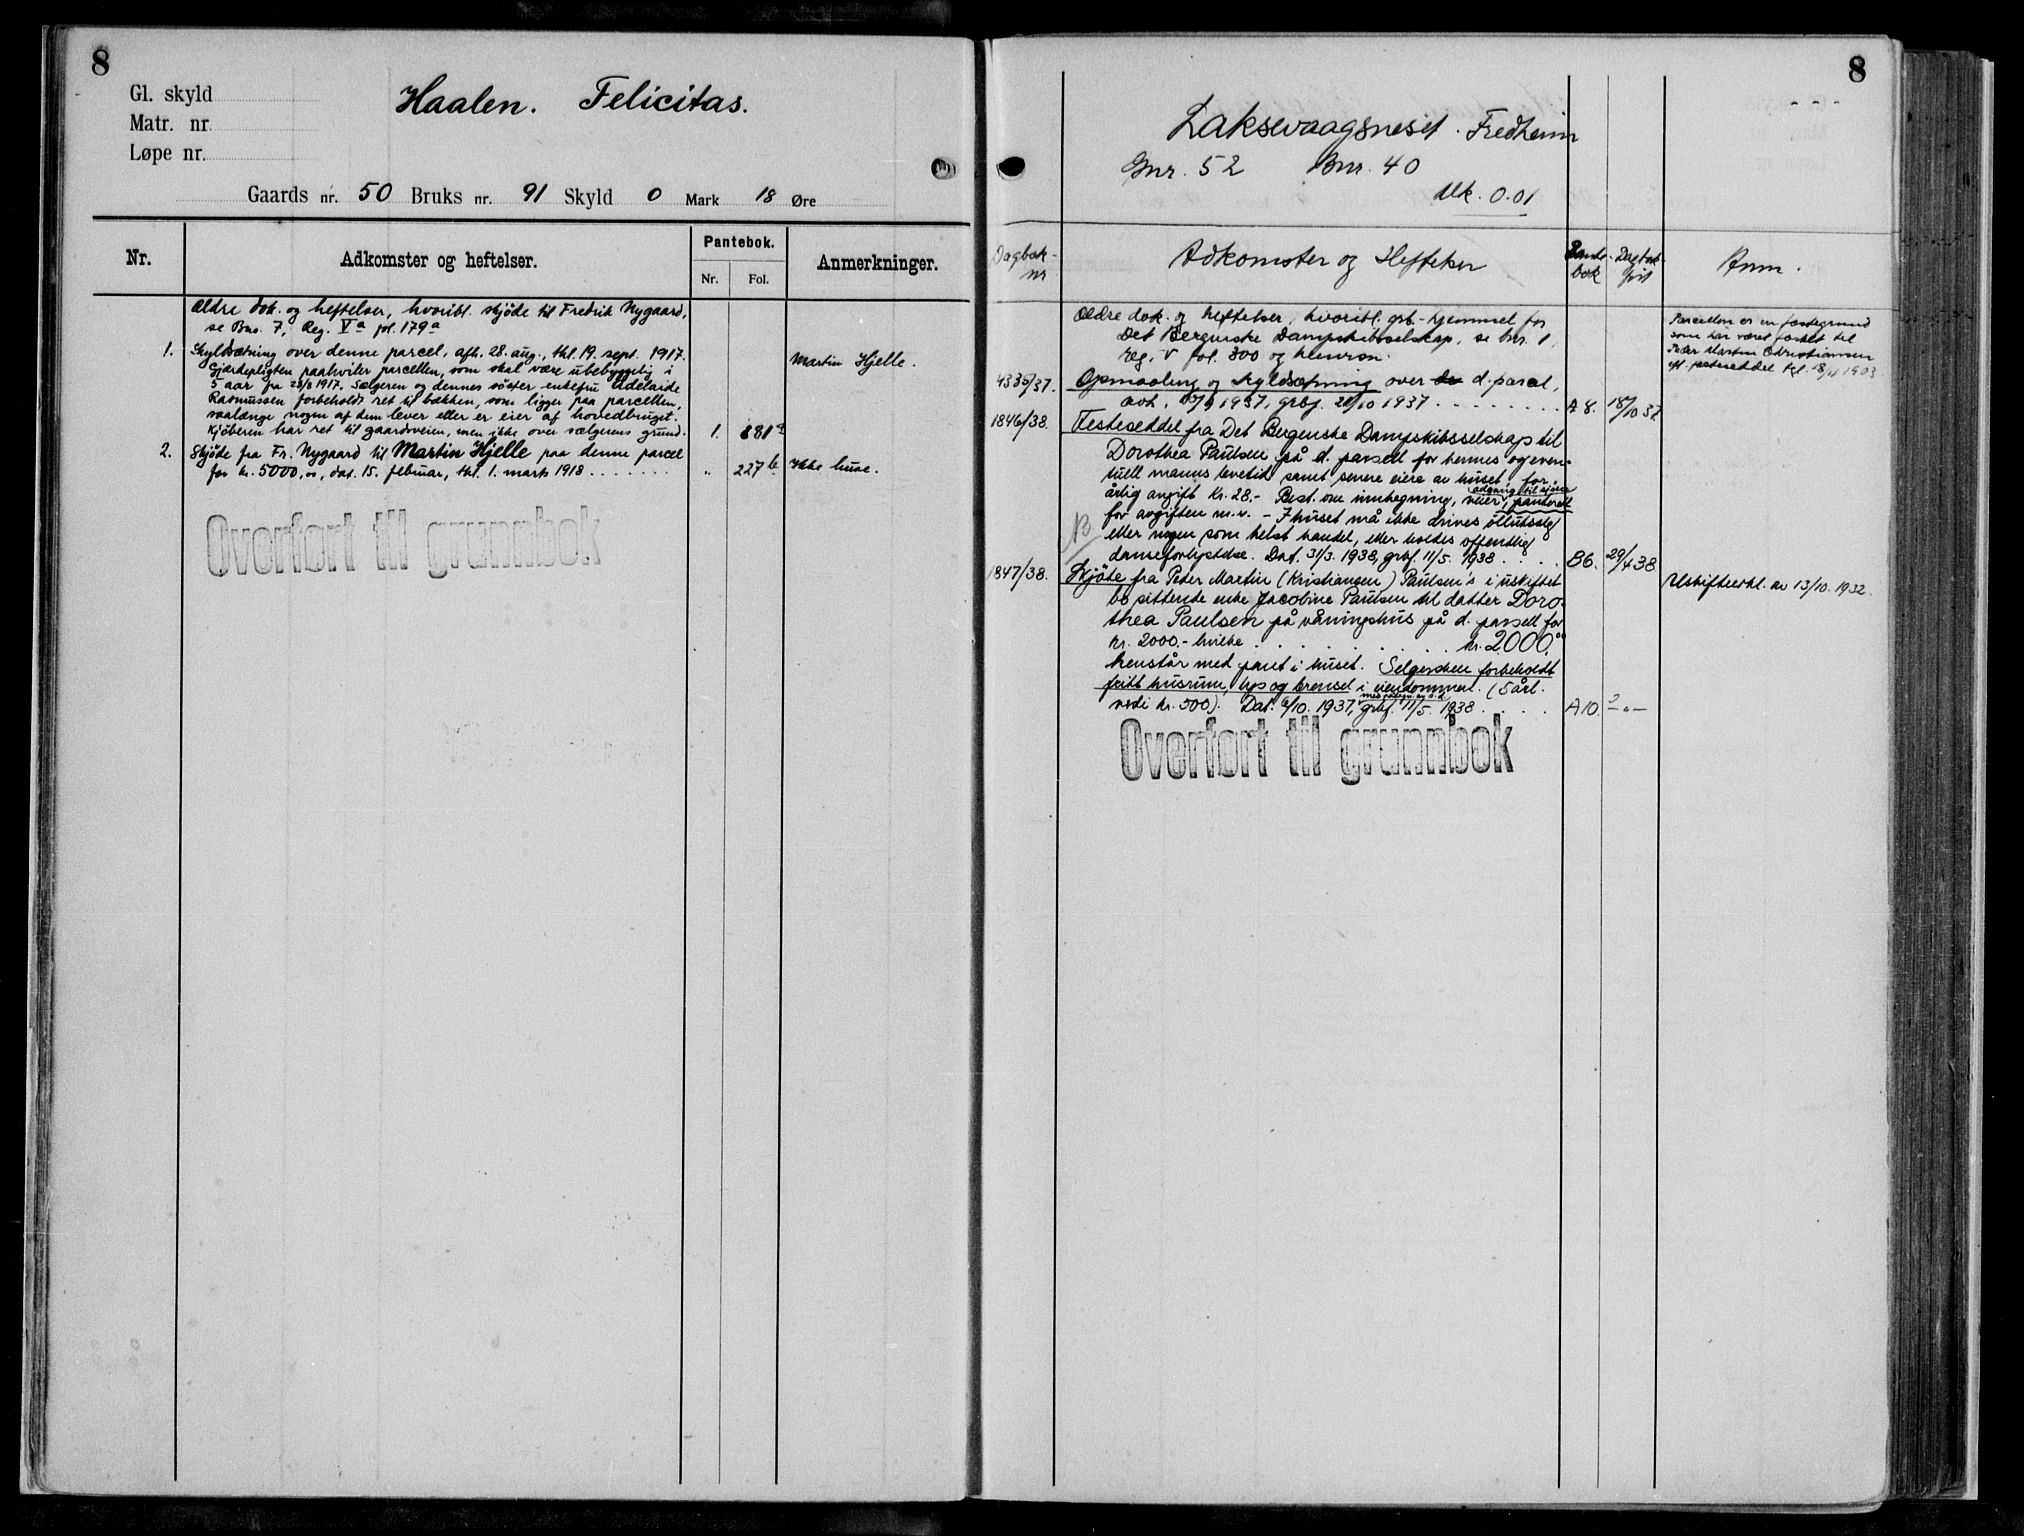 8
Gl. skyld
Matr. nr.
Løpe nr.
Haalen. Felicitas.
Gaards nr. 50 Bruks nr. 91 Skyld 0 Mark 18 Øre
Nr.
Adkomster og heftelser.
Pantebok.
Nr. Fol.
Anmerkninger.
Ældre dok. og heftelser, hvoribl. skjöde til Fredrik Nygaard,
se Bno. 7, Reg. Va fol. 179a
1. Skyldsætning over denne parcel, afh. 28. aug., thl. 19. sept. 1917.
Martin Hjelle.
Gjærdepligten paahviler parcellen, som skal være ubebyggelig i
5 aar fra 28/8 1917. Sælgeren og dennes söster enkefru Adelaide
Rasmussen forbeholdt ret til bækken, som ligger paa parcellen,
saalænge nogen af dem lever eller er eier af hovedbruget.
Kjöberen har ret til gaardsveien, men ikke over sælgerens grund. 1. 881a
2. Skjöde fra Fr. Nygaard til Martin Hjelle paa denne parcel
for kr. 5000,00, dat. 15. februar, thl. 1. marts 1918 . . . . . . . " 227b Ikke huse.
Overført til grunnbok
8
Laksevaagsneset. Fredheim
Gnr. 52 Bnr. 40
Mk. 0.01
Dagbok-
nr
Adkomster og Heftelser
Pante-
bok
Dagbok-
ført
Anm.
Ældre dok. og heftelser, hvoribl. grb.-hjemmel for
Det Bergenske Dampskibsselskap, se bnr. 1,
reg. V fol. 300 og henvisn.
Parcellen er en fæstegrund
som har været fæstet til
Peder Martin Christiansen
4335/37. Opmaaling og skyldsætning over d. parcel,
1937, grbf. 21/10 1937 . . . . . . . . A 8. 18/10 37.
1846/38. Festeseddel fra Det Bergenske Dampskibsselskap til
Dorothea Paulsen på d. parsell for hennes og even-
tuell manns levetid samt senere eiere av huset for
årlig avgift kr. 28,- Best. om innhegning, veier, adgang til sjøen, panterett
for avgiften m.v. - I huset må ikke drives ølutsalg
eller nogen som helst handel, eller holdes offentlig
danseforlystelse. Dat. 31/3. 1938, grbf. 11/5. 1938 . . . . B6. 29/4 38
1847/38. Skjöte fra Peder Martin (Kristiansen) Paulsen's i uskiftet
Uskifteerkl. av 13/10. 1932.
bo sittende enke Jacobine Paulsen til datter Doro-
thea Paulsen på våningshus på d. parsell for
kr. 2000,- hvilke . . . . . . . . . kr. 2000.00
henstår med pant i huset. Selgersken forbeholdt
fritt husrum, lys og brensel i eiendommen. (5 årl.
verdi kr. 500). Dat. 6/10. 1937, grbf. 11/5. 1938 . . . . A10. - " -
Overført til grunnbok